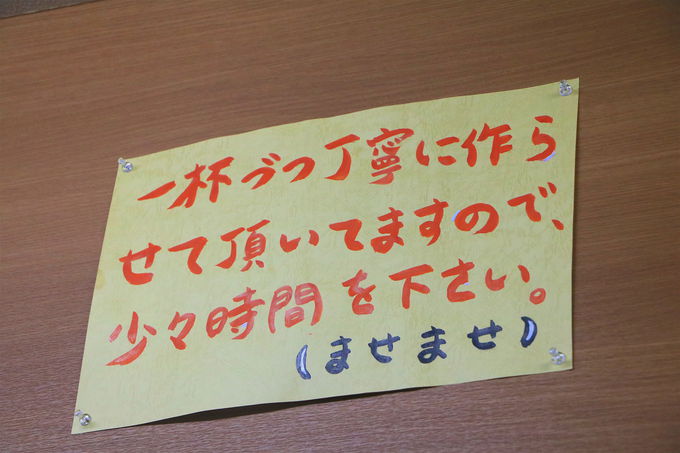 一杯づつ丁寧に作ら
せて頂いてますので、
少々時間を下さい。
(ませませ)